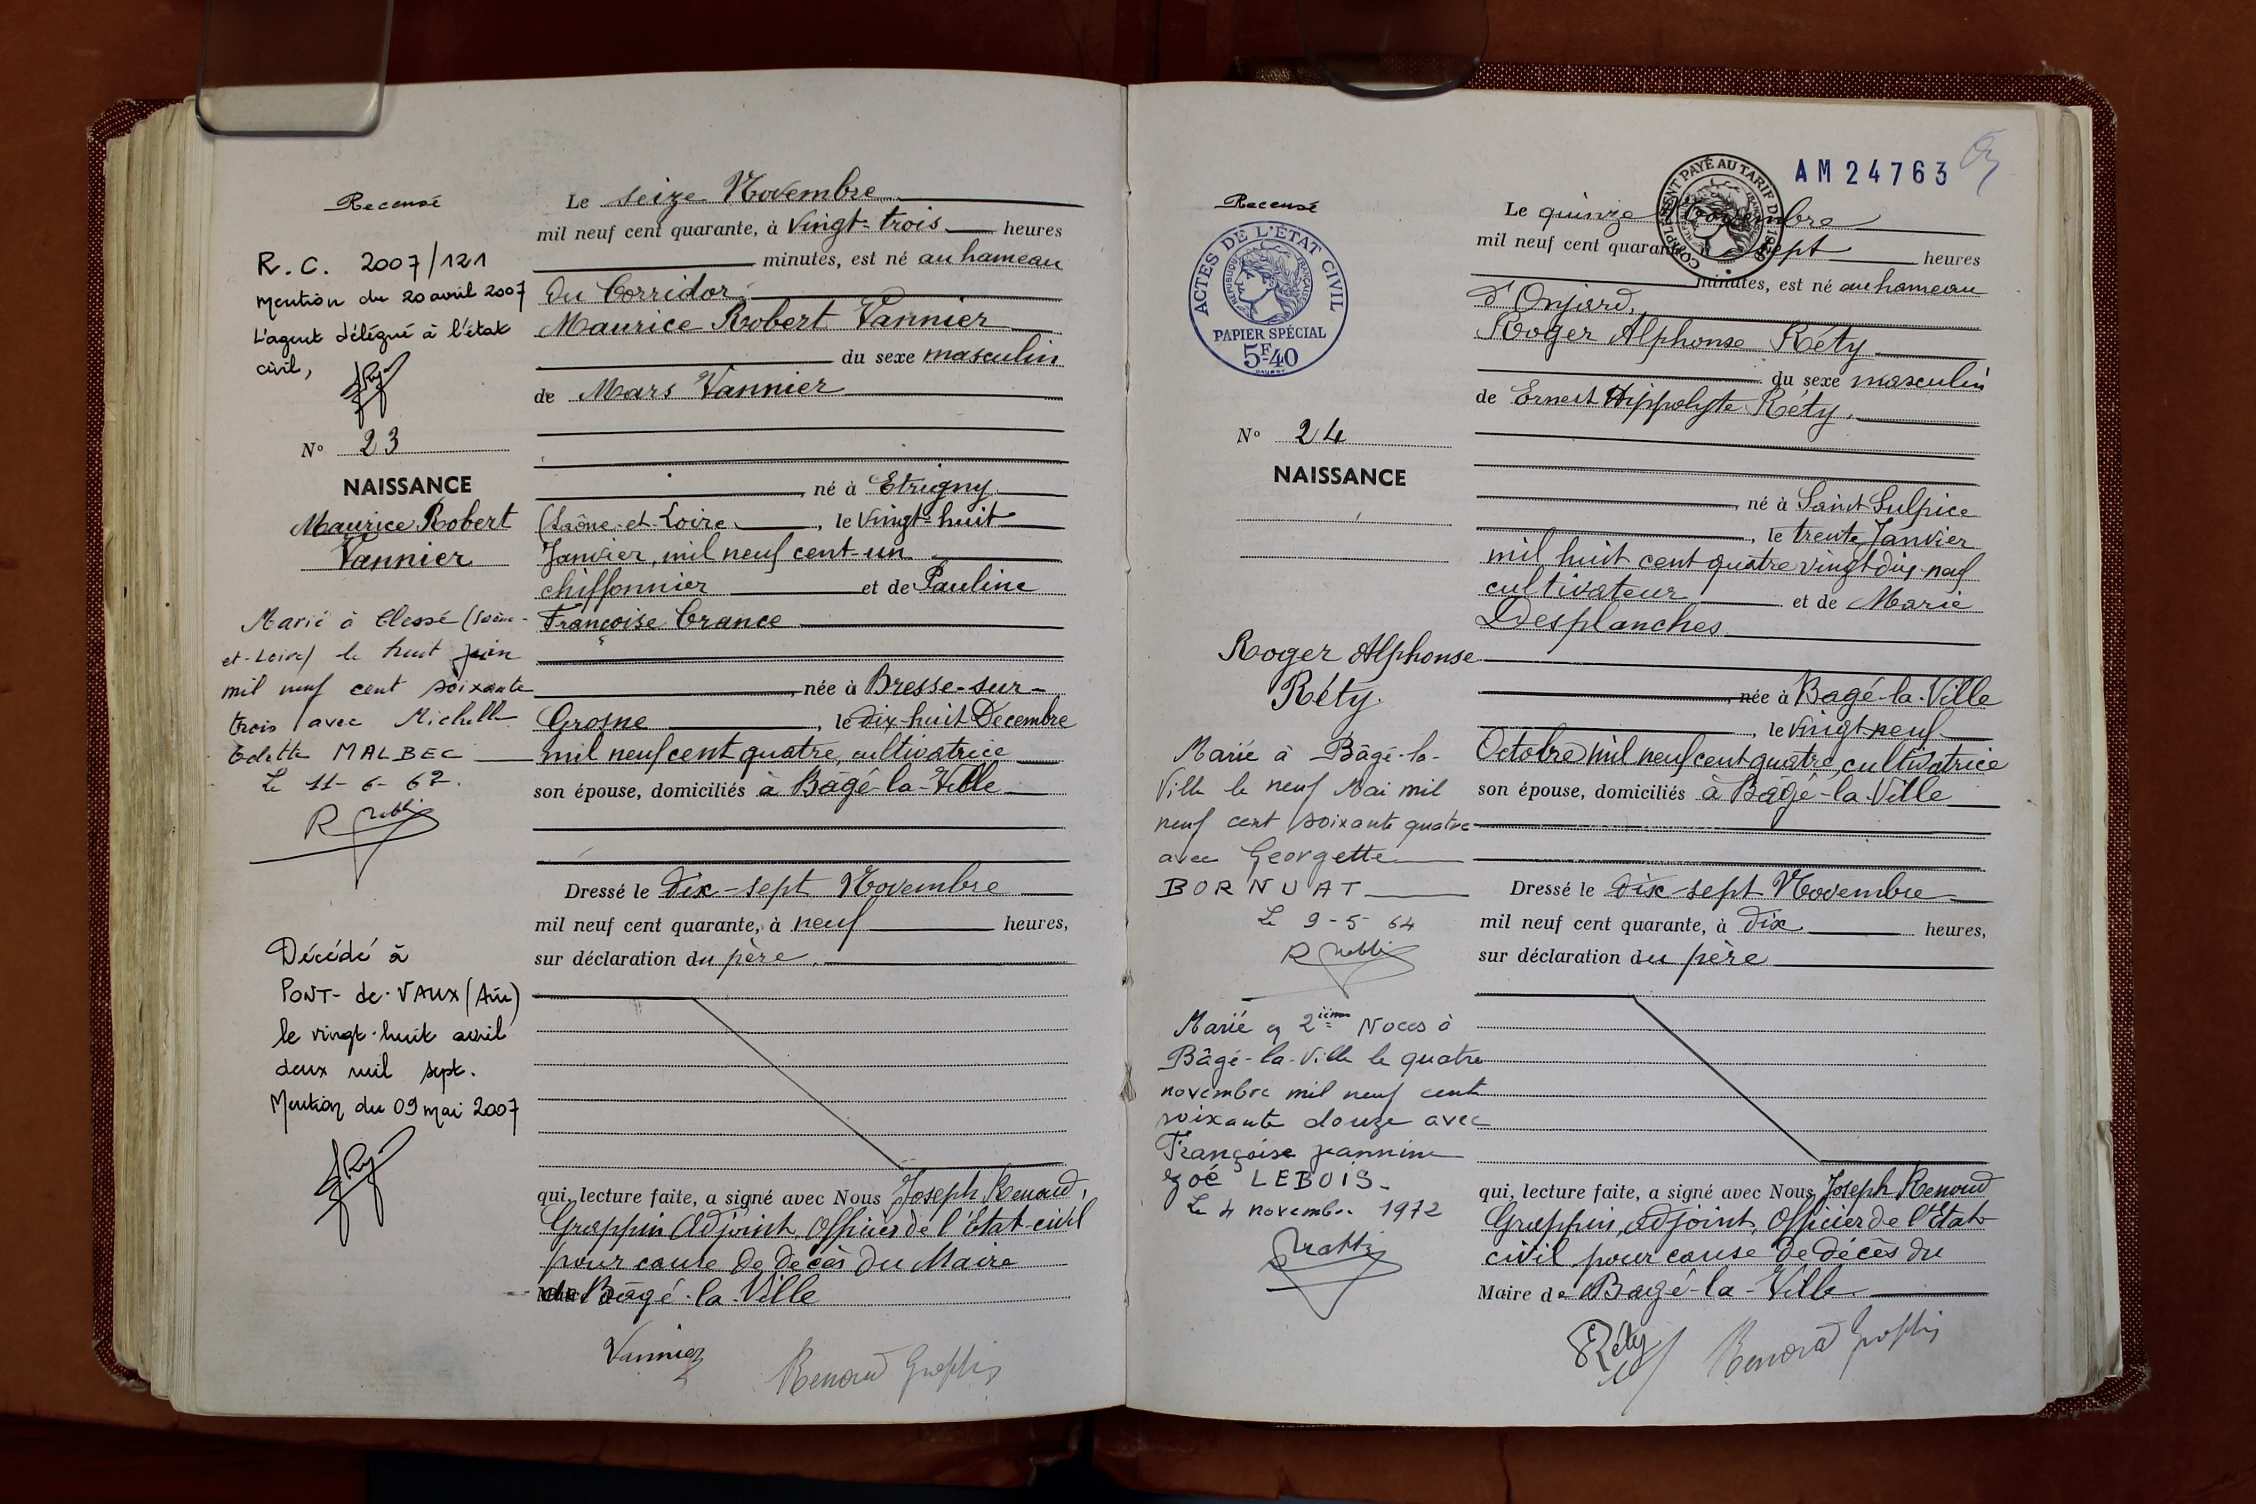 Recensé
R.C. 2007/121
Mention du 20 avril 2007
L'agent délégué à l'état
civil,
N° 23
NAISSANCE
Maurice Robert
Vannier
Marié à Clessé (Saône-
et-Loire) le huit juin
mil neuf cent soixante
trois avec Michelle
Odette MALBEC
Le 11-6-63.
Décédé à
PONT-de-VAUX (Ain)
le vingt-huit avril
deux mil sept.
Mention du 09 mai 2007
Le seize Novembre
mil neuf cent quarante, à vingt-trois heures
minutes, est né au hameau
du Corridor,
Maurice Robert Vannier
du sexe masculin
de Mars Vannier
, né à Etrigny
(Saône-et-Loire , le vingt-huit
Janvier, mil neuf cent-un
chiffonnier et de Pauline
Françoise Crance
, née à Bresse-sur-
Grosne , le dix-huit Décembre
mil neuf cent quatre, cultivatrice
son épouse, domiciliés à Bâgé-la-Ville
Dressé le dix-sept Novembre
mil neuf cent quarante, à neuf heures,
sur déclaration du père.
qui, lecture faite, a signé avec Nous Joseph Renoud,
Greppin Adjoint, Officier de l'Etat-civil
pour cause de décès du Maire
de Bâgé-la-Ville
Vannier
Renoud Greppin
AM 24763
Recensé
ACTES DE L'ÉTAT CIVIL
RÉPUBLIQUE FRANÇAISE
PAPIER SPÉCIAL
5F-40
N° 24
NAISSANCE
Roger Alphonse
Réty.
Marié à Bâgé-la-
Ville le neuf Mai mil
neuf cent soixante quatre
avec Georgette
BORNUAT
Le 9-5-64
Marié en 2ième Noces à
Bâgé-la-Ville le quatre
novembre mil neuf cent
soixante douze avec
Françoise Jeannine
Zoé LEBOIS-
Le 4 novembre 1972
Le quinze Novembre
mil neuf cent quarante, à sept heures
minutes, est né au hameau
d'Onjard,
Roger Alphonse Réty
du sexe masculin
de Ernest Hippolyte Réty.
, né à Saint Sulpice
, le trente Janvier
mil huit cent quatre vingt dix-neuf
cultivateur et de Marie
Desplanches
, née à Bagé-la-Ville
, le vingt-neuf
Octobre mil neuf cent quatre, cultivatrice
son épouse, domiciliés à Bâgé-la-Ville
Dressé le dix-sept Novembre
mil neuf cent quarante, à dix heures,
sur déclaration du père
qui, lecture faite, a signé avec Nous Joseph Renoud
Greppin, adjoint, Officier de l'Etat
civil pour cause de décès du
Maire de Bagé-la-Ville
Réty
Renoud Greppin